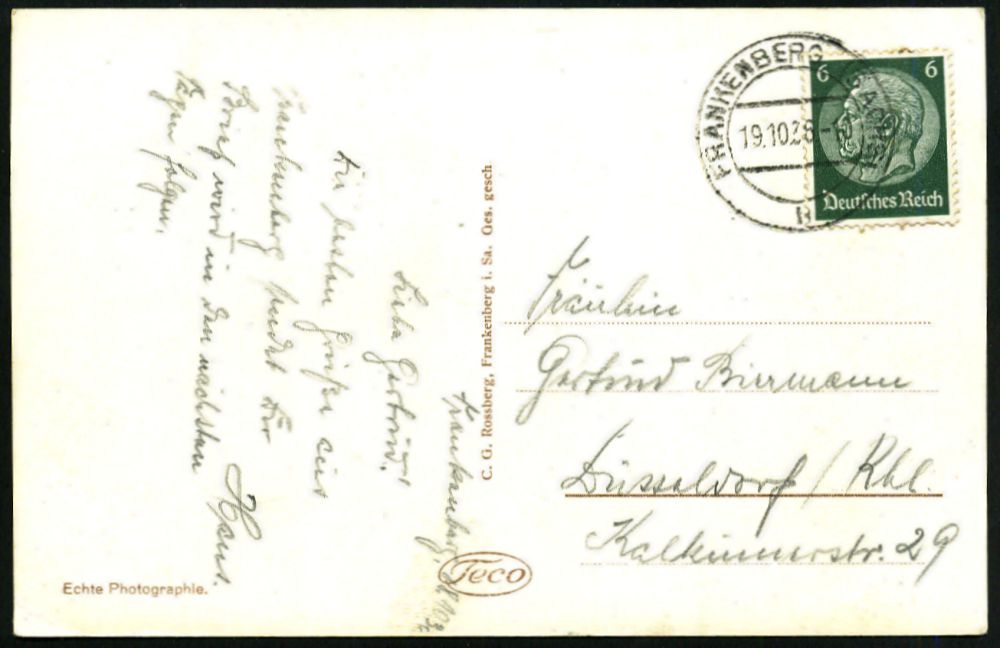 Frankenberg,
Liebe Gertrud!
Die besten Grüße aus
Frankenberg sendet Dir
Hans.
Brief wird in den nächsten
Tagen folgen.
Echte Photographie.
C. G. Rossberg, Frankenberg i. Sa. Ges. gesch
Teco
FRANKENBERG
19.10.38
6
6
Deutsches Reich
Fräulein
Gertrud Biermann
Düsseldorf / Rhl.
29